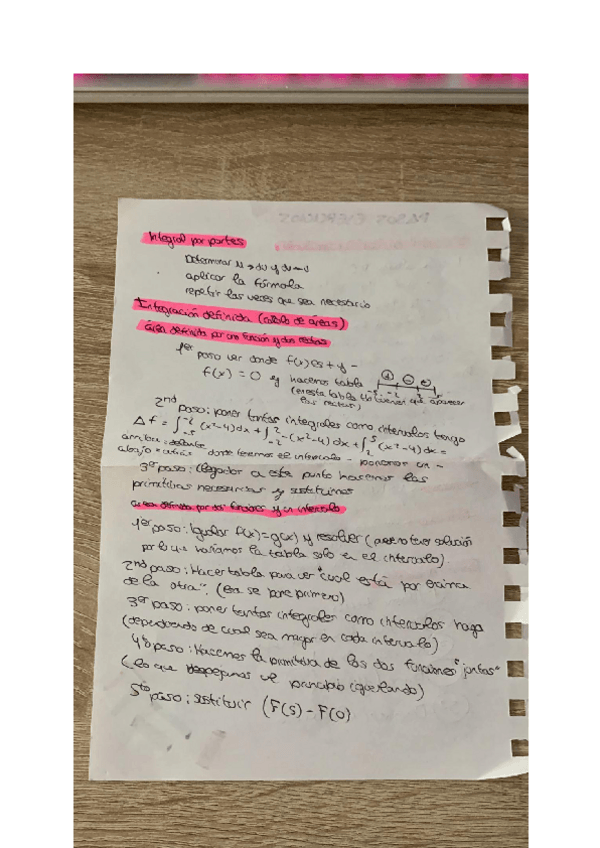 Integral por partes
Determinar u → du y dv → v
aplicar la fórmula
repetir las veces que sea necesario
Integración definida (cálculo de áreas)
área definida por una función y dos rectas
1er paso ver donde f(x) es + y -
f(x) = 0 y hacemos tabla
(en esta tabla tienen que aparecer
las rectas)
+ - +
-5 -2 2 5
2nd paso: poner tantas integrales como intervalos tengo
Δf = ∫-5 -2 (x²-4)dx + ∫-2 2 -(x²-4)dx + ∫2 5 (x²-4)dx =
arriba = delante
abajo = atrás donde tenemos el intervalo - ponemos un -
3er paso: llegados a este punto hacemos las
primitivas necesarias y sustituimos
área definida por dos funciones y un intervalo
1er paso: Igualar f(x)=g(x) y resolver (puede no tener solución
por lo que haríamos la tabla solo en el intervalo).
2nd paso: Hacer tabla para ver "cual está por encima
de la otra". (esa se pone primero)
3er paso: poner tantas integrales como intervalos haya
(dependiendo de cual sea mayor en cada intervalo)
4to paso: Hacemos la primitiva de las dos funciones "juntas"
(lo que despejamos al principio igualando)
5to paso: sustituir (F(5) - F(0)